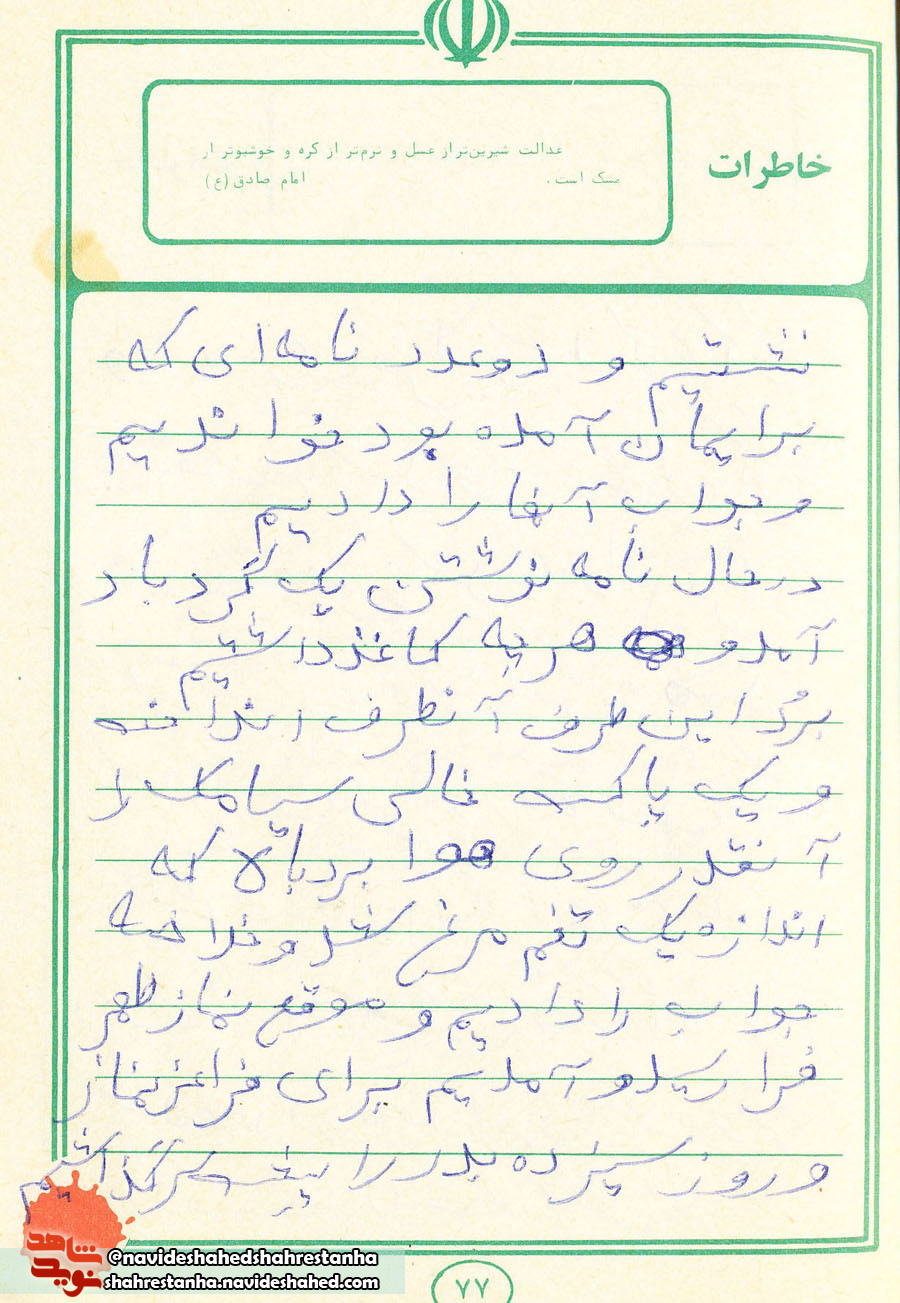 خاطرات
عدالت شیرین‌تر از عسل و نرم‌تر از کره و خوشبوتر از
مسک است . امام صادق (ع)
نشستیم و دو عدد نامه‌ای که
برایمان آمده بود خواندیم
و جواب آنها را دادیم
در حال نامه نوشتن یک گردباد
آمد و هر چه کاغذ داشتیم
برد این طرف آنطرف انداخته
و یک پاکت خالی سیامک را
آنقدر روی هوا برد بالا که
اندازه یک تخم مرغ شد و خلاصه
جواب را دادیم و موقع نماز ظهر
فرا رسید و آمدیم برای نماز
و روز سیزده بدر را پشت سر گذاشتیم
نوید شاهد
@navideshahedshahrestanha
shahrestanha.navideshahed.com
۷۷